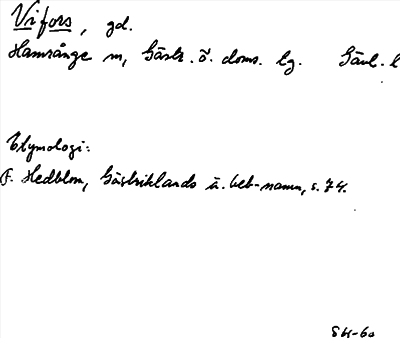 Vifors, gd.
Hamrånge sn, Gästr. ö. doms. hg. Gävl. l
Etymologi:
F. Hedblom, Gästriklands ä. beb-namn, s. 74.